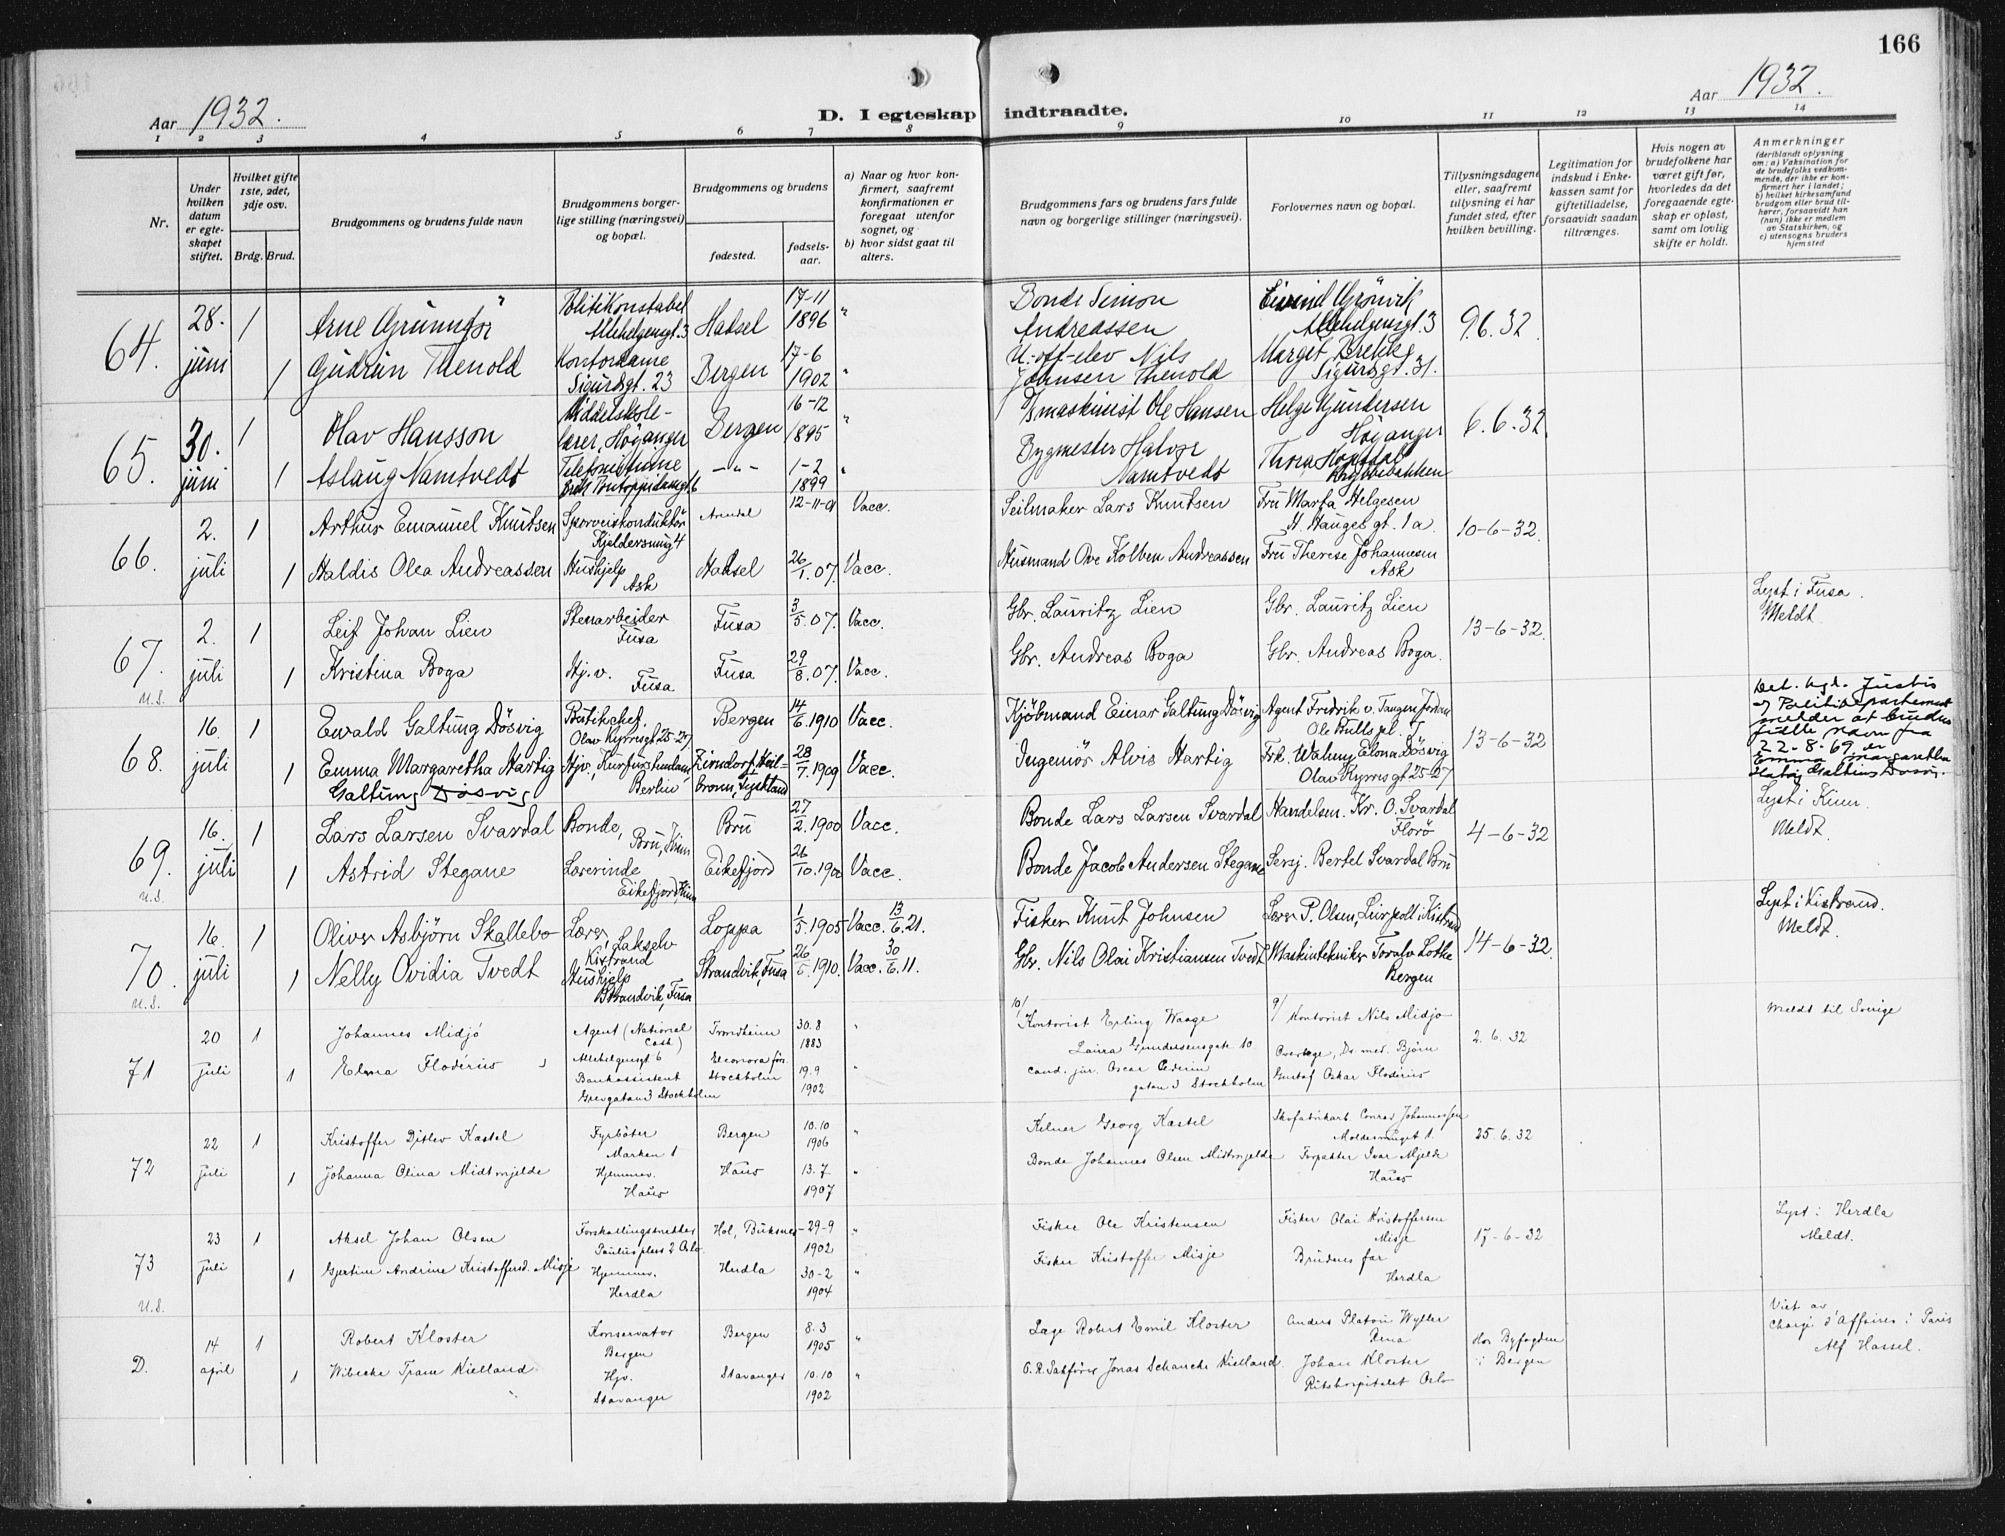 166
Aar 1932.
D. I egteskap indtraadte.
Aar 1932.
1 2 3 4 5 6 7 8 9 10 11 12 13 14
Nr.
Under hvilken datum er egteskapet stiftet.
Hvilket gifte 1ste, 2det, 3dje osv.
Brdg. Brud.
Brudgommens og brudens fulde navn
Brudgommens borgerlige stilling (næringsvei) og bopæl.
Brudgommens og brudens
fødested.
fødselsaar.
a) Naar og hvor konfirmert, saafremt konfirmationen er foregaat utenfor sognet, og
b) hvor sidst gaat til alters.
Brudgommens fars og brudens fars fulde navn og borgerlige stillinger (næringsvei).
Forlovernes navn og bopæl.
Tillysningsdagene eller, saafremt tillysning ei har fundet sted, efter hvilken bevilling.
Legitimation for indskud i Enkekassen samt for giftetilladelse, forsaavidt saadan tiltrænges.
Hvis nogen av brudefolkene har været gift før, hvorledes da det foregaaende egteskap er opløst, samt om lovlig skifte er holdt.
Anmerkninger
(deriblandt oplysning om: a) Vaksination for de brudefolks vedkommende, der ikke er konfirmert her i landet; b) hvilket kirkesamfund brudgom eller brud tilhører, forsaavidt han (hun) ikke er medlem av Statskirken, og c) utensogns bruders hjemsted
64. 28. juni 1 Arne Grunnfør Politikonstabel Allehelgensgt. 3 Hadsel 17-11 1896 " Bonde Simon Andreassen Eivind Grønvik Allehelgensgt. 3 9.6.32
1 Gudrun Thenold Kontordame Sigurdsgt. 23 Bergen 17-6 1902 " U.off-elev Nils Johnsen Thenold Margit Brekke Sigurdsgt. 31.
65. 30. juni 1 Olav Hansson Middelskolelærer, Høyanger Bergen 16-12 1895 " Maskinist Ole Hansen Helge Gundersen Høyanger 6.6.32.
1 Aslaug Namtvedt Telefonistinne -"- 1-2 1899 " Bygmester Halvor Namtvedt Thora Krybbebakken
66. 2. juli 1 Arthur Emanuel Knutsen Sporveiskonduktør Kjeldersmug 4 Arendal 12-11-01 Vacc. Seilmaker Lars Knutsen Fru Marta Helgesen H. Hauges gt. 1a 10-6-32.
1 Haldis Olea Andreassen Hushjelp Ask Hadsel 26/1.07. Vacc. Husmand Ove Kolben Andreassen Fru Therese Johannesen Ask
67. u.s. 2. juli 1 Leif Johan Lien Stenarbeider Fusa Fusa 3/5.07. Vacc. Gbr. Lauritz Lien Gbr. Lauritz Lien 13-6-32. Lyst i Fusa. Meldt.
1 Kristina Boga Hj.v. Fusa Fusa 29/8.07. Vacc. Gbr. Andreas Boga Gbr. Andreas Boga.
68. 16. juli 1 Ewald Galtung Døsvig Butikchef. Olav Kyrresgt 25-27 Bergen 14/6.1910 Vacc. Kjøbmand Einar Galtung Døsvig Agent Fredrik v. Tangen Jordan Ole Bulls pl. 7 13-6-32
1 Emma Margaretha Hartig Galtung Døsvig Hjv., Kurfürstendam Berlin Zirndorf, Heilbronn, Tyskland 28/7.1909 Vacc. Ingeniør Alvis Hartig Frk. Walmy Elona Døsvig Olav Kyrresgt 25-27
Det kgl. Justis og Politidepartement melder at brudens fulle navn fra 22-8-69 er Emma Margaretha Hartig Galtung Døsvig.
69. u.s. 16. juli 1 Lars Larsen Svardal Bonde, Bru, Kinn Bru 27/2.1900 Vacc. Bonde Lars Larsen Svardal Handelsm. Kr. O. Svardal Florø 4-6-32 Lyst i Kinn. Meldt.
1 Astrid Stegane Lærerinde Eikefjord, Kinn Eikefjord 26/10.1900 Vacc. Bonde Jacob Andersen Stegane Sersj. Bertel Svardal Bru
70. u.s. 16. juli 1 Oliver Asbjørn Skallebo Lærer, Lakselv Kistrand Loppa 1/5.1905 Vacc. 13/6.21. Fisker Knut Johnsen Lærer P. Olsen, Leirpoll i Kistrand 14-6-32. Lyst i Kistrand. Meldt.
1 Nelly Ovidia Tvedt Hushjelp Strandvik, Fusa Strandvik, Fusa 26/5.1910. Vacc. 30/6.11. Gbr. Nils Olai Kristiansen Tvedt Maskintekniker Toralv Lothe Bergen
71 20 juli 1 Johannes Midjo Agent (National Cash) Allehelgensgt 6 Trondheim 30.8 1883 " 10/ Kontorist Erling Waage Laura Gundersensgate 10 9/ Kontorist Nils Midjo 2.6.32 Meldt til Sverige
1 Elma Floderus Bankassistent Grevgatan 3 Stockholm Eleonora før. Stockholm 19.9 1902 " Cand. jur. Oscar Cederin gatan 3 Stockholm Overlege, Dr. med. Bjørn Gustaf Oskar Floderus
72 22 juli 1 Kristoffer Ditlev Kastel Fyrbøter Marken 1 Bergen 10.10 1906 " Kelner Georg Kastel Skofabrikant Conrad Johannessen Moldesmuget 1. 25.6.32
1 Johanna Olina Midtmjelde Hjemmev. Haus Haus 13.7 1907 " Bonde Johannes Olsen Midtmjelde Forpakter Ivar Mjelde Haus
73 u.s. 23 juli 1 Aksel Johan Olsen Forskallingsnekker Paulus plass 2 Oslo Hol, Buksnes 29-9 1902 " Fisker Ole Kristensen Fisker Olai Kristoffersen Misje 17-6-32 Lyst i Herdla Meldt.
1 Gjertine Andrine Kristoffersd. Misje Hjemmev. Herdla Herdla 30-2 1904 " Fisker Kristoffer Misje Brudens far Herdla
D. 14 april 1 Robert Kloster Konservator Bergen Bergen 8.3 1905 " Læge Robert Emil Kloster Anders Platou Wyller Rena Hos Byfogden i Bergen Viet av Chargé d'Affaires i Paris Alf Hassel.
1 Wibecke Tram Kielland Hjv. Stavanger Stavanger 10.10 1902 " O.R. Sakfører Jonas Schancke Kielland Johan Kloster Rikshospitalet Oslo